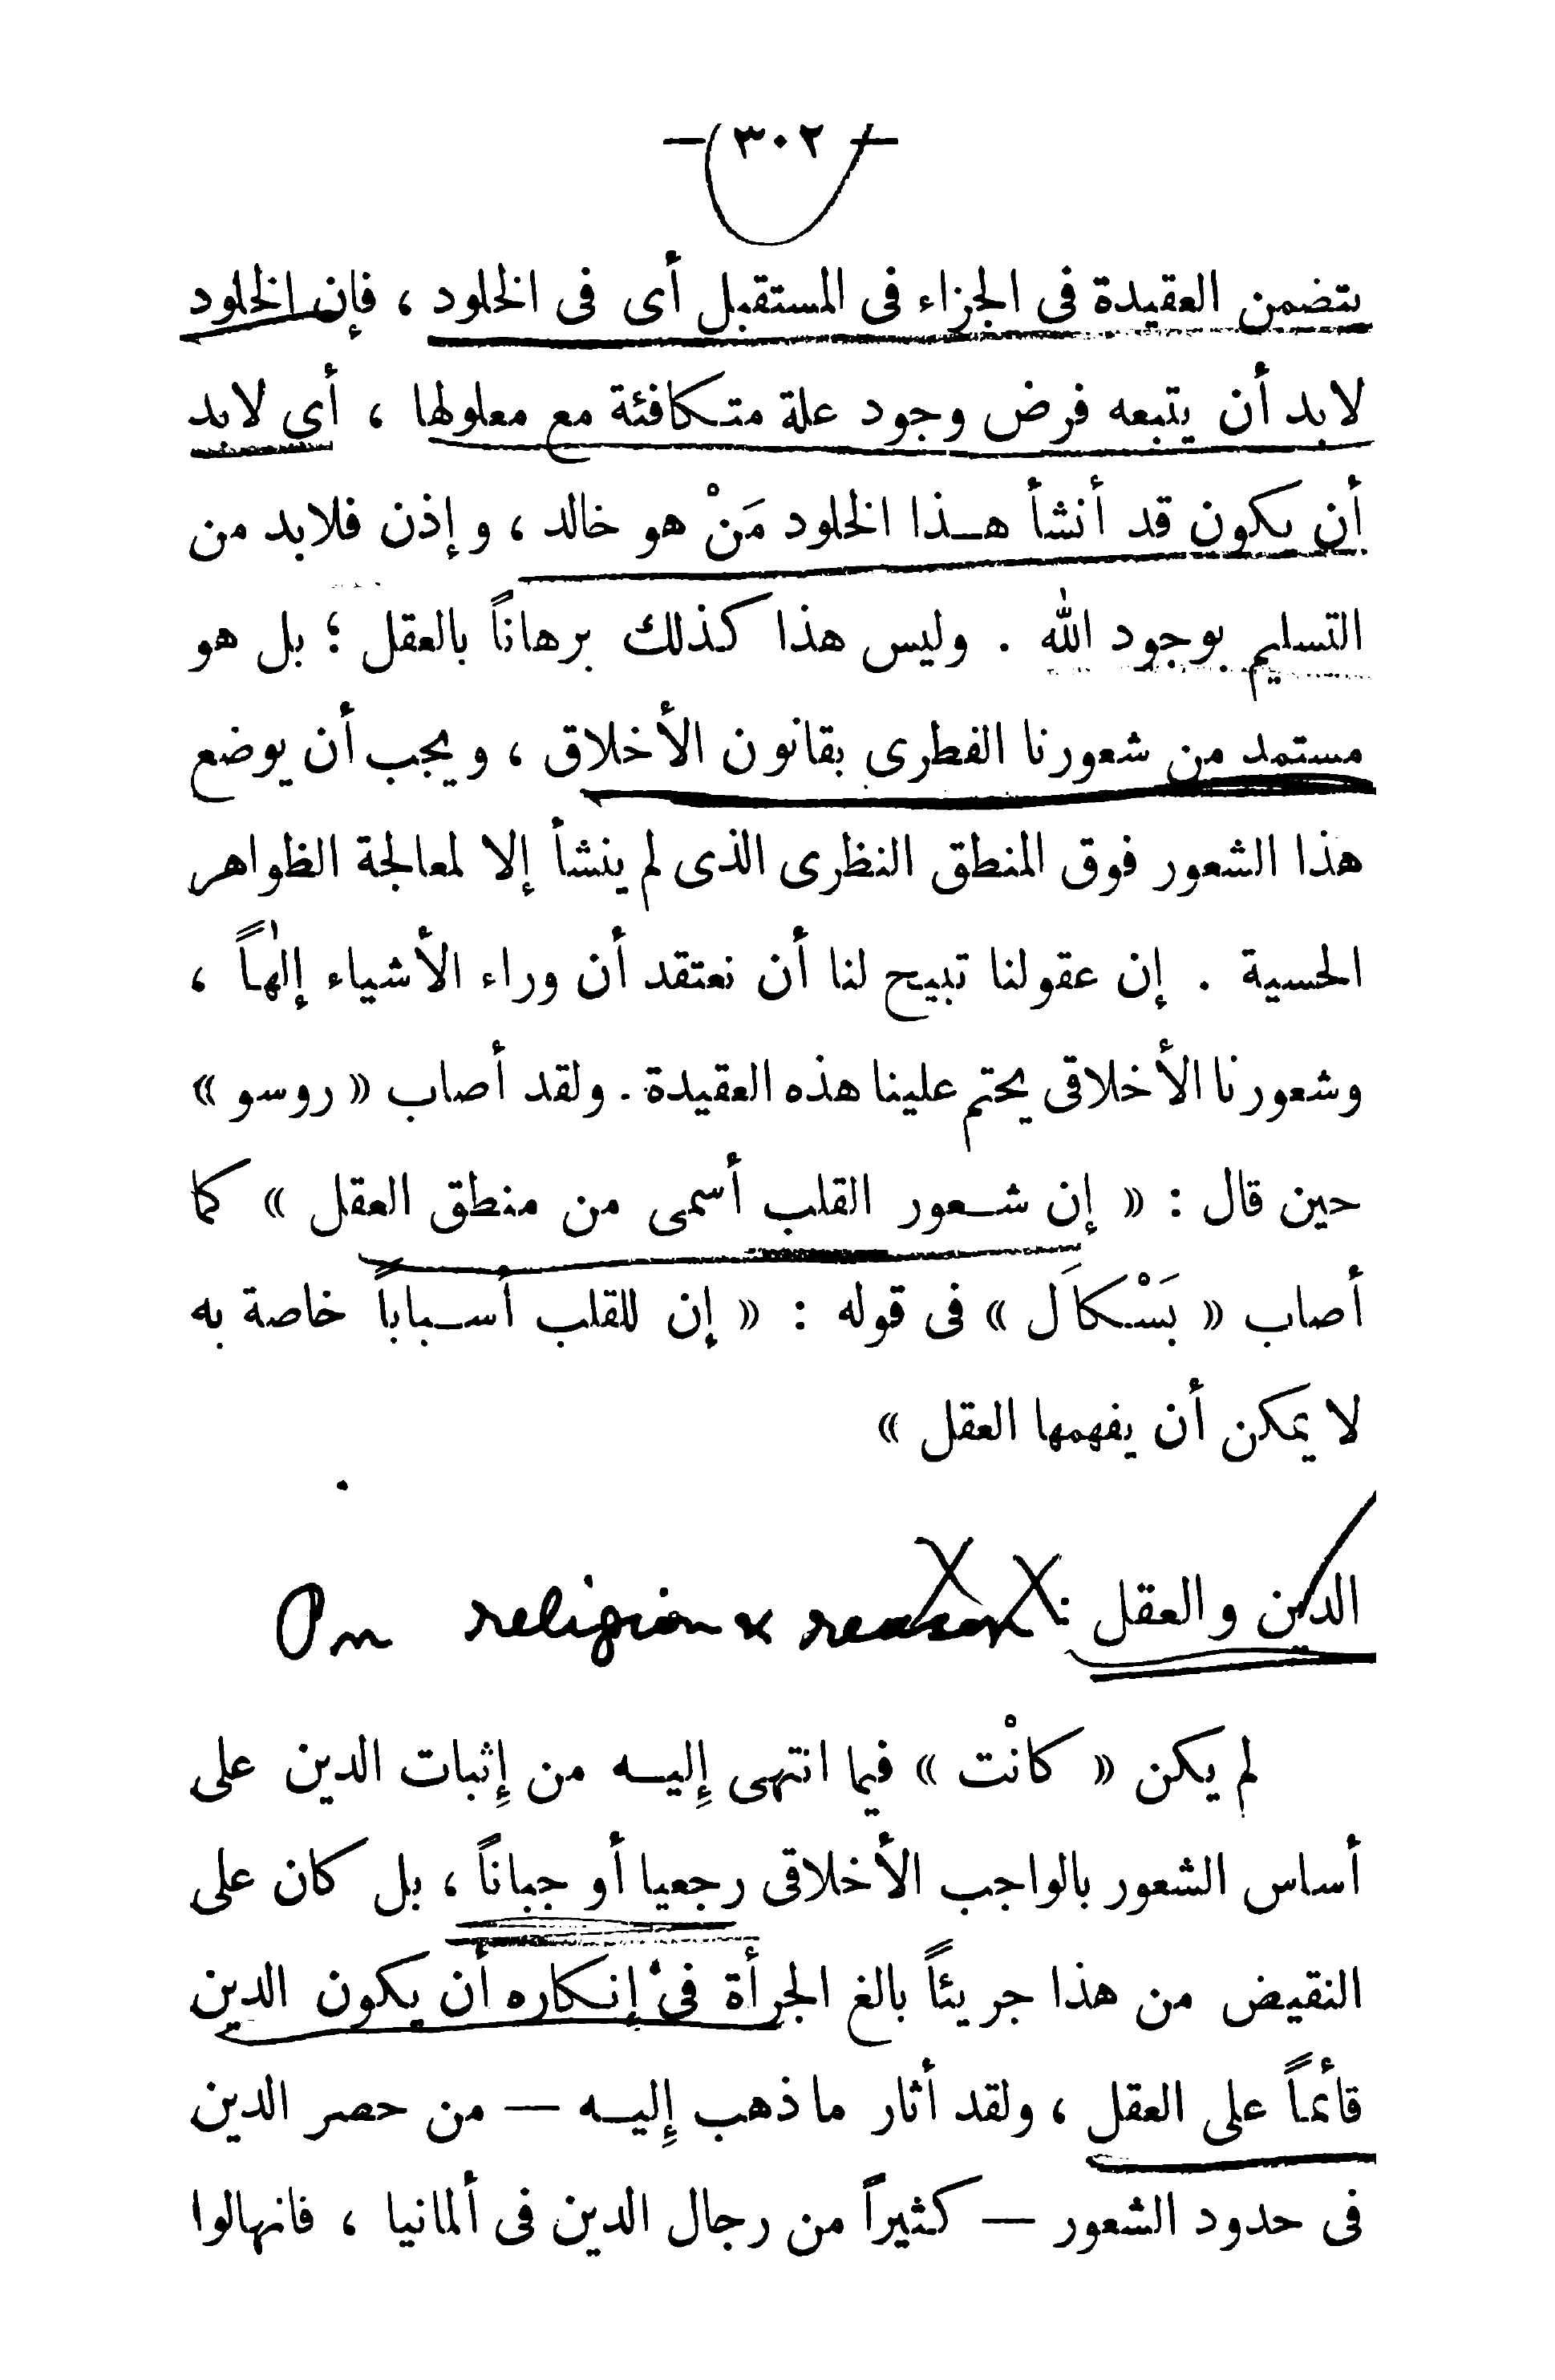 — ٣٠٢ —
تتضمن العقيدة فى الجزاء فى المستقبل أى فى الخلود ، فإن الخلود
لابد أن يتبعه فرض وجود علة متكافئة مع معلولها ، أى لابد
أن يكون قد أنشأ هـذا الخلود مَنْ هو خالد ، وإذن فلابد من
التسليم بوجود الله . وليس هذا كذلك برهاناً بالعقل ؛ بل هو
مستمد من شعورنا الفطرى بقانون الأخلاق ، ويجب أن يوضع
هذا الشعور فوق المنطق النظرى الذى لم ينشأ إلا لمعالجة الظواهر
الحسية . إن عقولنا تبيح لنا أن نعتقد أن وراء الأشياء إلٰهاً ،
وشعورنا الأخلاقى يحتم علينا هذه العقيدة . ولقد أصاب « روسو »
حين قال : « إن شـعور القلب أسمى من منطق العقل » كما
أصاب « بَسْكاَل » فى قوله : « إن للقلب أسـباباً خاصة به
لا يمكن أن يفهمها العقل »
الدين والعقل : On religion & reason
لم يكن « كانْت » فيما انتهى إِليـه من إِثبات الدين على
أساس الشعور بالواجب الأخلاقى رجعيا أو جباناً ، بل كان على
النقيض من هذا جريئاً بالغ الجرأة فى إنـكاره أن يكون الدين
قائماً على العقل ، ولقد أثار ما ذهب إِليـه — من حصر الدين
فى حدود الشعور — كثيراً من رجال الدين فى ألمانيا ، فانهالوا